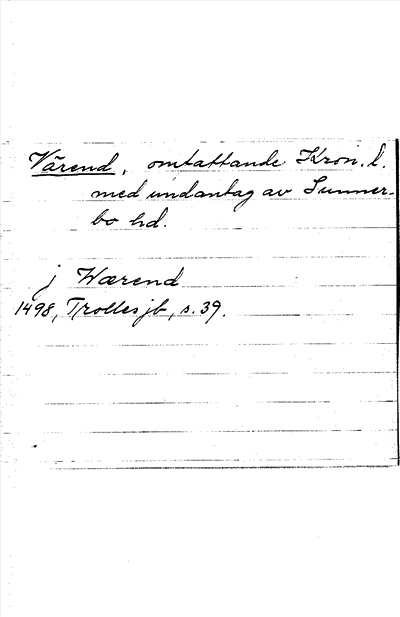 Värend, omfattande Kron. l.
med undantag av Sunner-
bo hd.
j Wærend
1498, Trolles jb, s. 39.